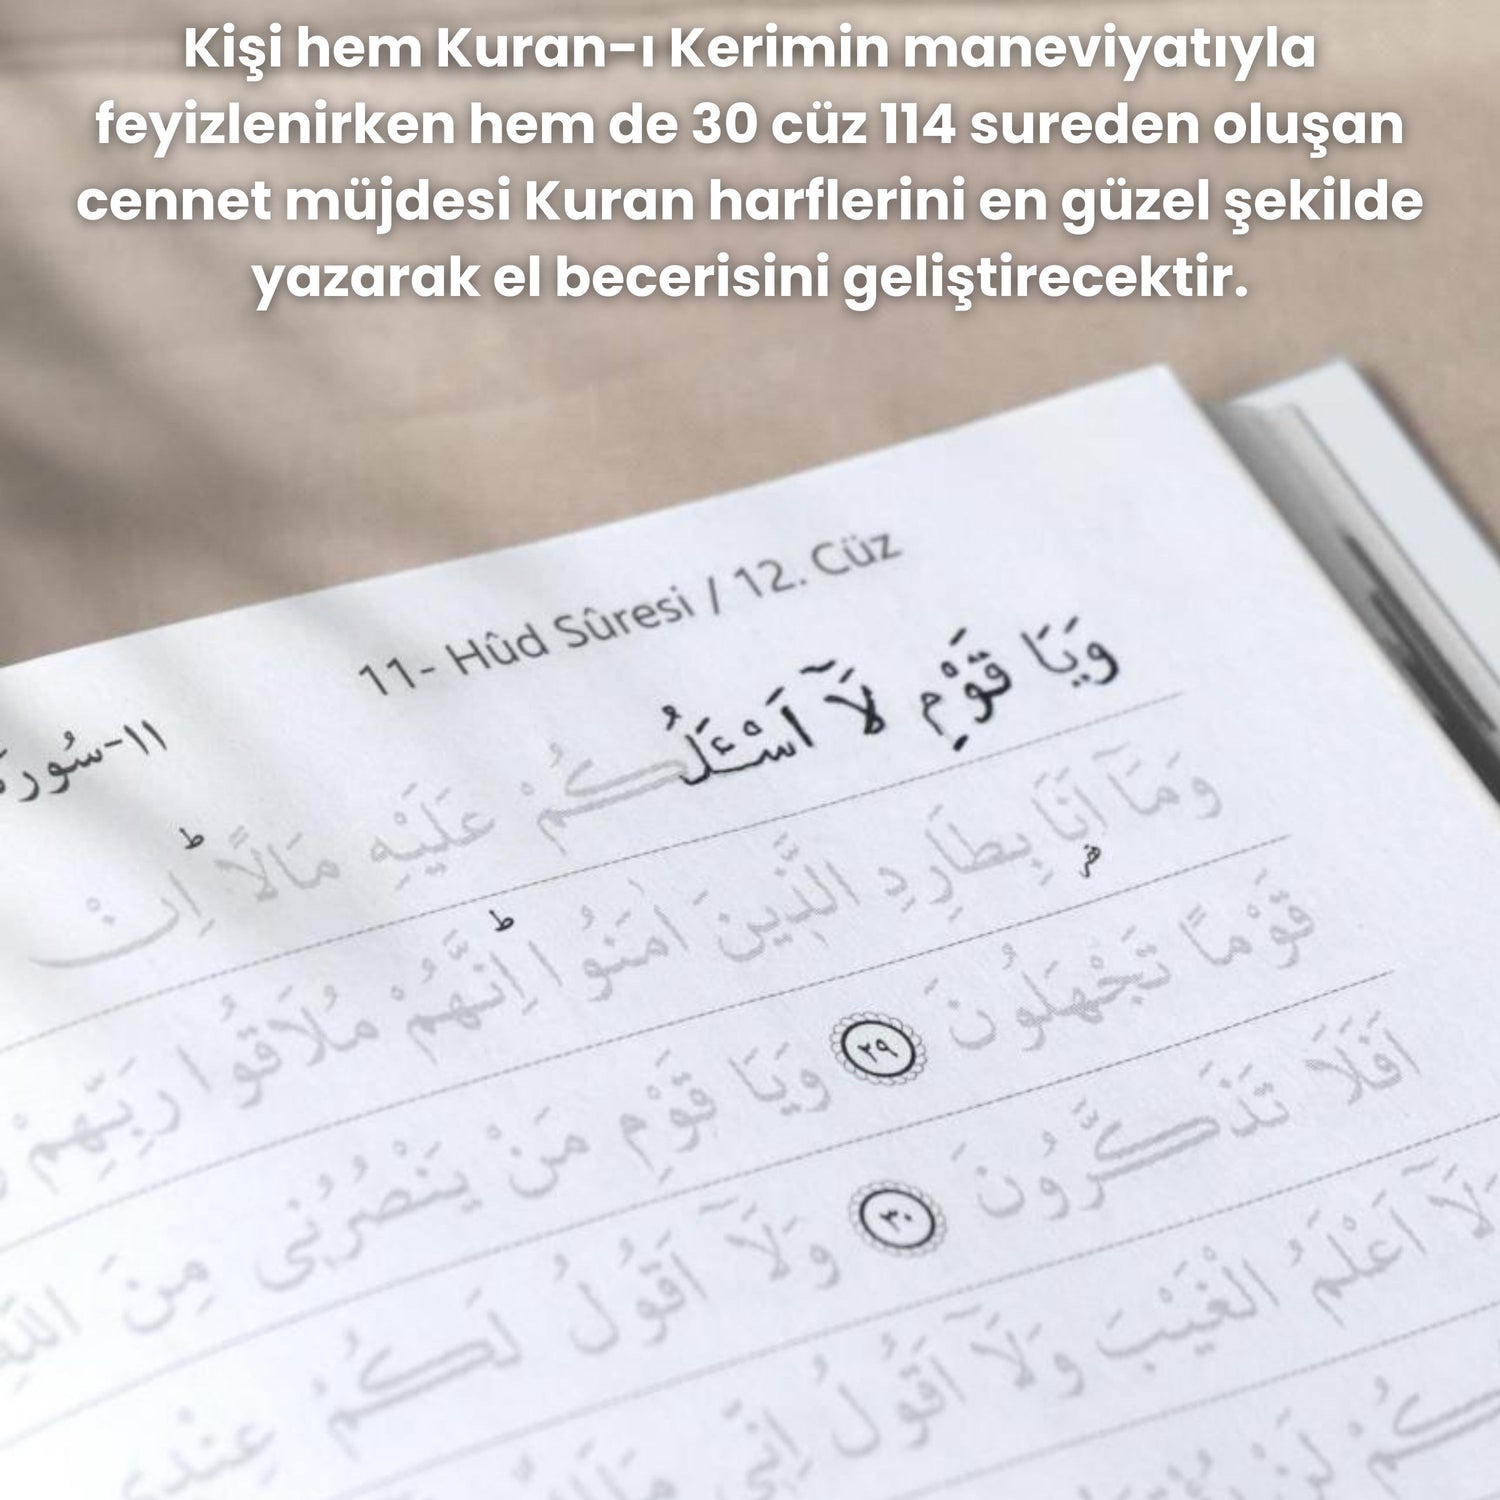 Kişi hem Kuran-ı Kerimin maneviyatıyla
feyizlenirken hem de 30 cüz 114 sureden oluşan
cennet müjdesi Kuran harflerini en güzel şekilde
yazarak el becerisini geliştirecektir.
11- Hûd Sûresi / 12. Cüz
١١-سُورَة
وَيَا قَوْمِ لَٓا اَسْـَٔلُكُمْ عَلَيْهِ مَالًاۜ اِنْ
وَمَٓا اَنَا۬ بِطَارِدِ الَّذ۪ينَ اٰمَنُواۜ اِنَّهُمْ مُلَاقُوا رَبِّهِمْ
قَوْمًا تَجْهَلُونَ ٢٩ وَيَا قَوْمِ مَنْ يَنْصُرُن۪ي مِنَ اللّٰهِ
اَفَلَا تَذَكَّرُونَ ٣٠ وَلَٓا اَقُولُ لَكُمْ عِنْد۪ي
وَلَٓا اَعْلَمُ الْغَيْبَ وَلَٓا اَقُولُ اِنّ۪ي